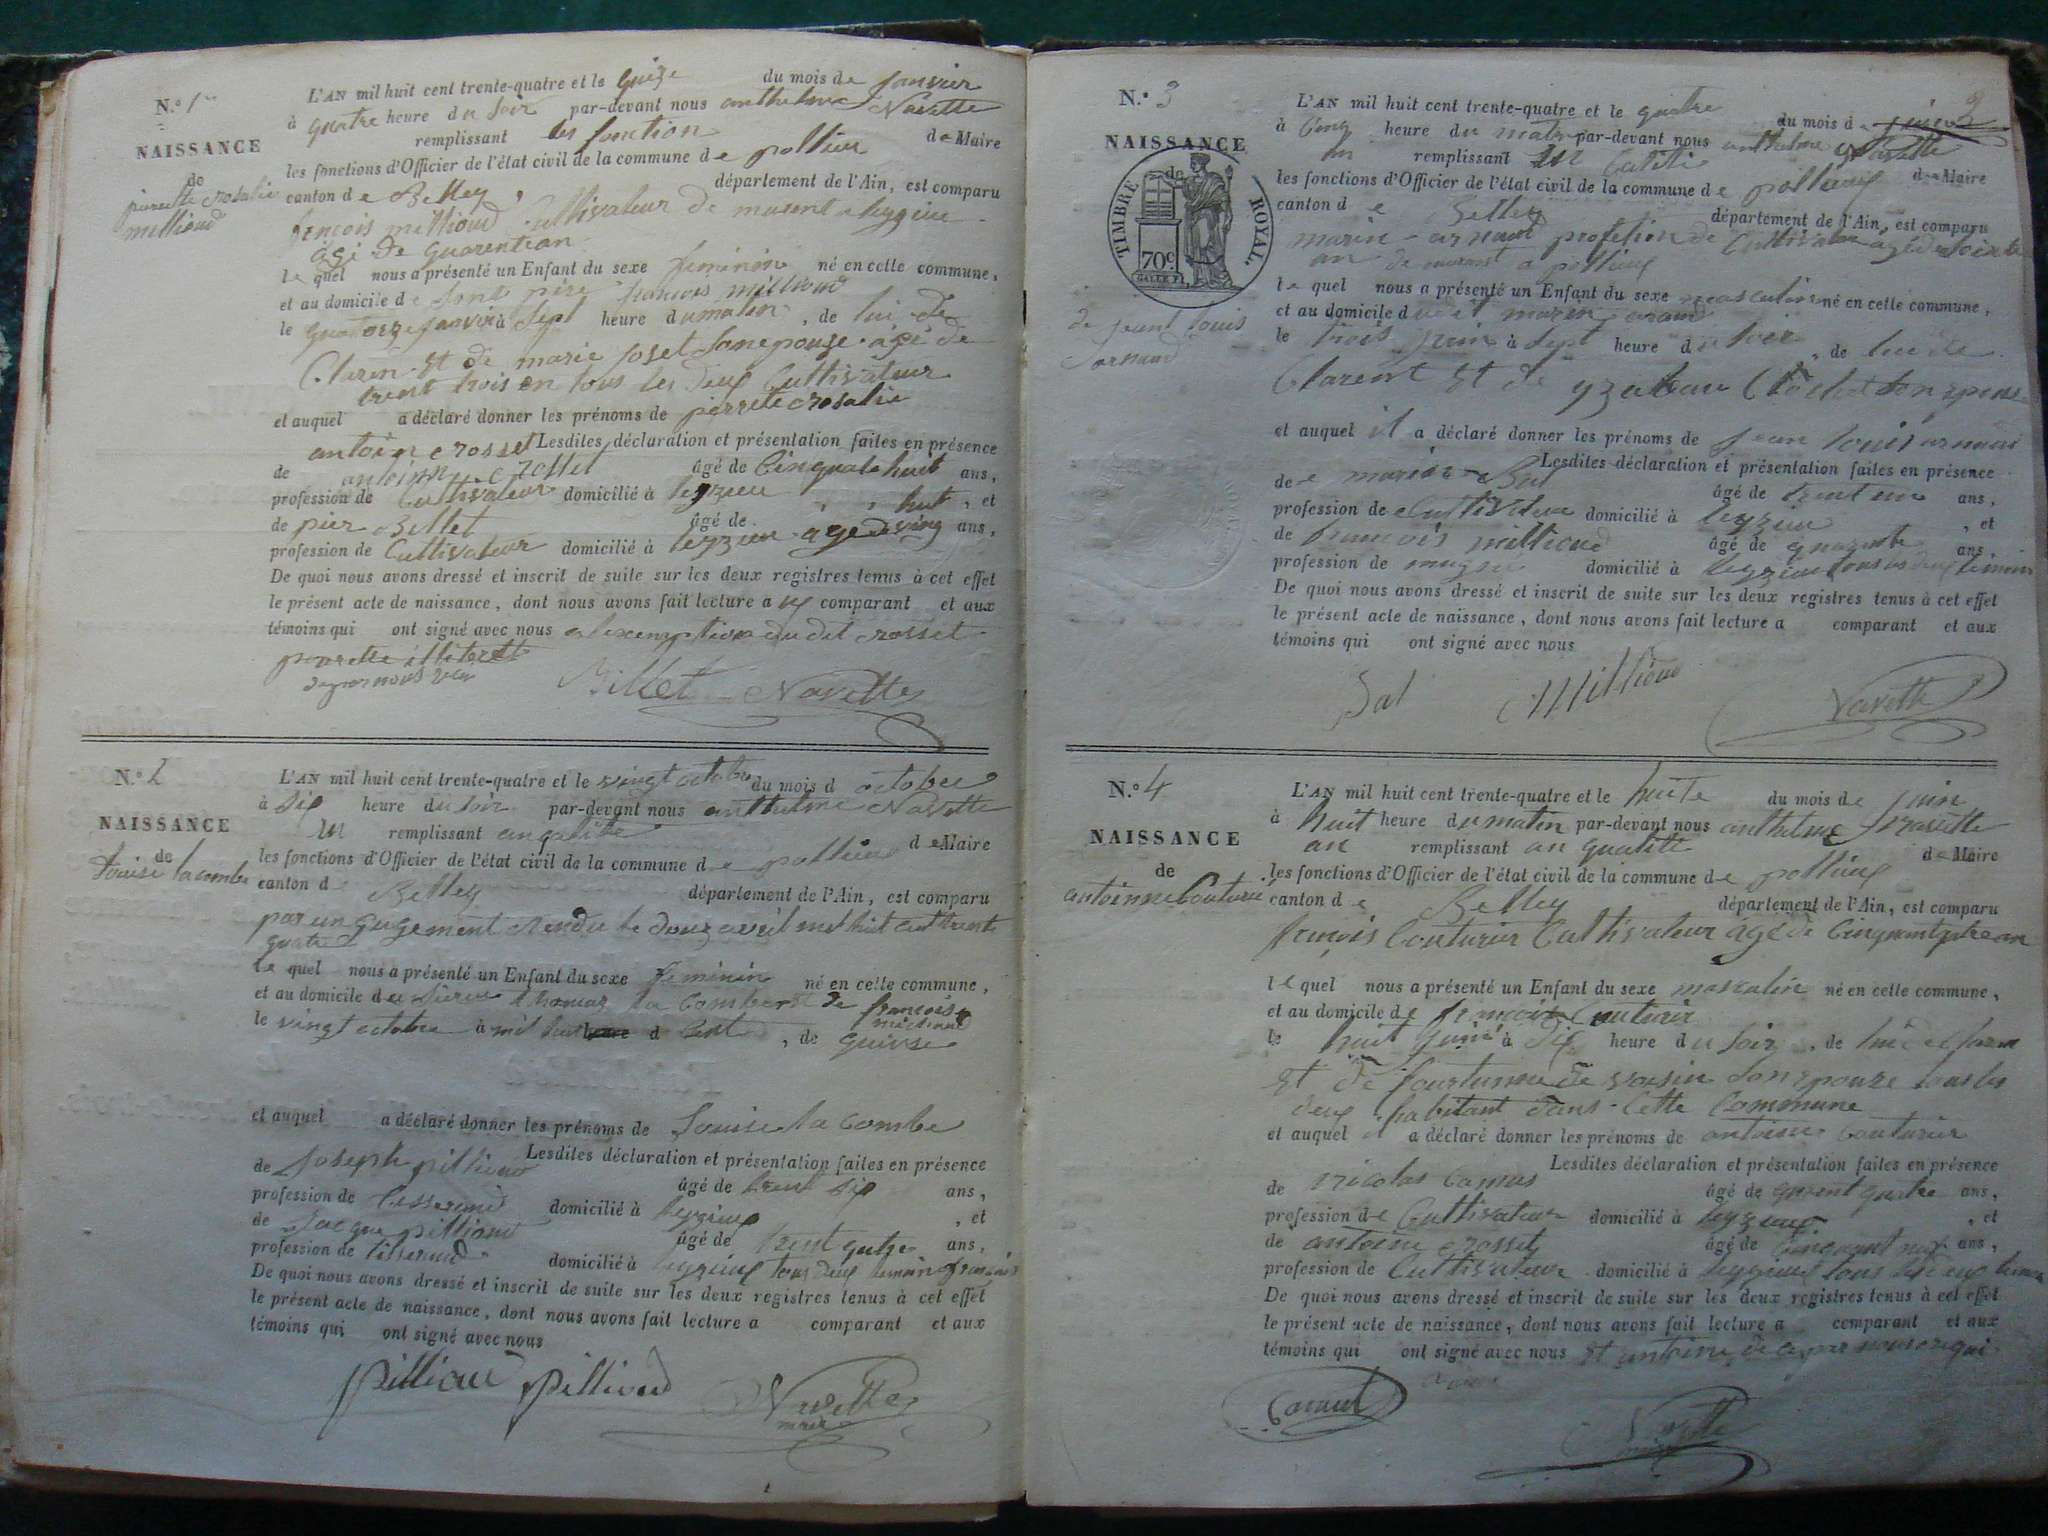 N.o 1er
NAISSANCE
de
pierrette rosalie
milliond
L'AN mil huit cent trente-quatre et le quize du mois de janvier
à quatre heure du soir par-devant nous anthelme Navette
remplissant les fonction de Maire
les fonctions d'Officier de l'état civil de la commune de pollieu
canton de Belley, département de l'Ain, est comparu
françois milliond Cultivateur de
agé de quarentian
le quel nous a présenté un Enfant du sexe feminin né en cette commune,
et au domicile de sont père françois milliond
le quatorze janvier à sept heure du matin, de lui de
Claren et de marie joset sonepouse agé de
trent trois en tous les deux Cultivateur
et auquel a déclaré donner les prénoms de pierrete rosalie
antoine rosset Lesdites déclaration et présentation faites en présence
de antoinne rosset âgé de Cinquate huit ans,
profession de Cultivateur domicilié à leyzieu, et
de pier Billet âgé de huit ans,
profession de Cultivateur domicilié à leyzieu age de ving
De quoi nous avons dressé et inscrit de suite sur les deux registres tenus à cet effet
le présent acte de naissance, dont nous avons fait lecture a comparant et aux
témoins qui ont signé avec nous a lexemption du dit rosset
illiteret
Billet Navette
N.o 2
NAISSANCE
de
Louise la combe
L'AN mil huit cent trente-quatre et le vingt octobre du mois d octobre
à six heure du soir par-devant nous anthelme Navette
remplissant an qalité de Maire
les fonctions d'Officier de l'état civil de la commune de pollieu
canton de Belley département de l'Ain, est comparu
par un gugement rendu le douz avril mil huit cent trente
quatre
le quel nous a présenté un Enfant du sexe feminin né en cette commune,
et au domicile du sieur thomas la Combe et de françoise
milliond
le vingt octobre à mil huit d cent, de quinse
et auquel a déclaré donner les prénoms de Louise la Combe
Lesdites déclaration et présentation faites en présence
de Joseph pilliond âgé de trent six ans,
profession de tisserand domicilié à leyzieu, et
de Jacque pilliond âgé de trent quatre ans,
profession de tiserand domicilié à leyzieu tous deux temoin
De quoi nous avons dressé et inscrit de suite sur les deux registres tenus à cet effet
le présent acte de naissance, dont nous avons fait lecture a comparant et aux
témoins qui ont signé avec nous
pilliond pilliond Navette
maire
N.o 3
NAISSANCE
de
TIMBRE ROYAL.
70c.
de jeant Louis
arnaud
3
L'AN mil huit cent trente-quatre et le quatre du mois de juin
à Cinq heure du matin par-devant nous anthelme Navette
remplissant de Maire
les fonctions d'Officier de l'état civil de la commune de pollieux
canton de Belley département de l'Ain, est comparu
marin arnaud profession de Cultivateur
an a pollieux
le quel nous a présenté un Enfant du sexe masculin né en cette commune,
et au domicile du dit marin arnaud
le trois juin à sept heure du soir, de lui de
Clarent et de yzabeau
et auquel il a déclaré donner les prénoms de jean louis arnaud
Lesdites déclaration et présentation faites en présence
de marin âgé de ans,
profession de Cultivateur domicilié à leyzieu, et
de françois milliond âgé de quarente ans,
profession de domicilié à leyzieu tous deux temoin
De quoi nous avons dressé et inscrit de suite sur les deux registres tenus à cet effet
le présent acte de naissance, dont nous avons fait lecture a comparant et aux
témoins qui ont signé avec nous
Milliond Navette
N.o 4
NAISSANCE
de
antoinne Couturié
L'AN mil huit cent trente-quatre et le huite du mois de juin
à huit heure du matin par-devant nous anthelme Navette
an remplissant an qualité de Maire
les fonctions d'Officier de l'état civil de la commune de pollieux
canton de Belley département de l'Ain, est comparu
françois Couturier Cultivateur agé de
le quel nous a présenté un Enfant du sexe masculin né en cette commune,
et au domicile de françois Couturir
le huit juin à six heure du soir, de lui
et de fourtunne de voisin son epouze tous les
deux habitant dans Cette Commune
et auquel il a déclaré donner les prénoms de antoine Couturier
Lesdites déclaration et présentation faites en présence
de nicolas Camus âgé de quarent quatre ans,
profession de Cultivateur domicilié à leyzieux, et
de antoine rosset âgé de Cinquant neuf ans,
profession de Cultivateur domicilié à leyzieux tous
De quoi nous avons dressé et inscrit de suite sur les deux registres tenus à cet effet
le présent acte de naissance, dont nous avons fait lecture a comparant et aux
témoins qui ont signé avec nous et antoine
Camus Navette